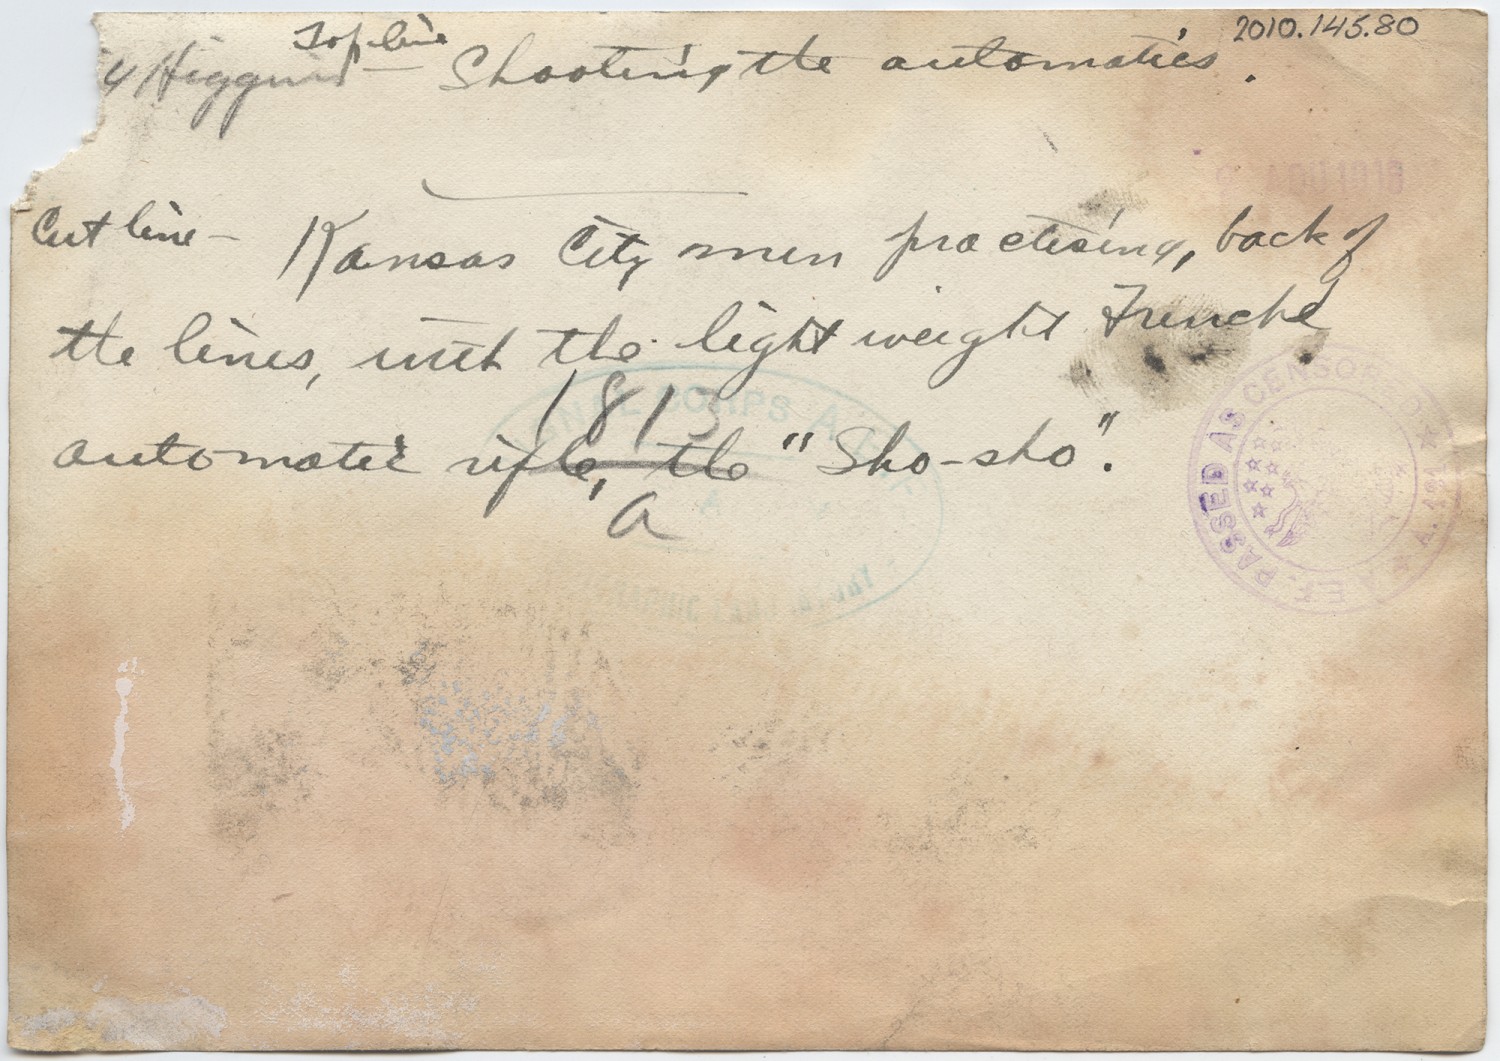 2010.145.80
Top line
Higgins — Shooting the automatics.
Cut line – Kansas City men practising, back of
the lines, with the light weight French
automatic rifle, the "Sho-sho".
1813
a
SIGNAL CORPS A.E.F.
A
PASSED AS CENSORED
A.E.F.
1918